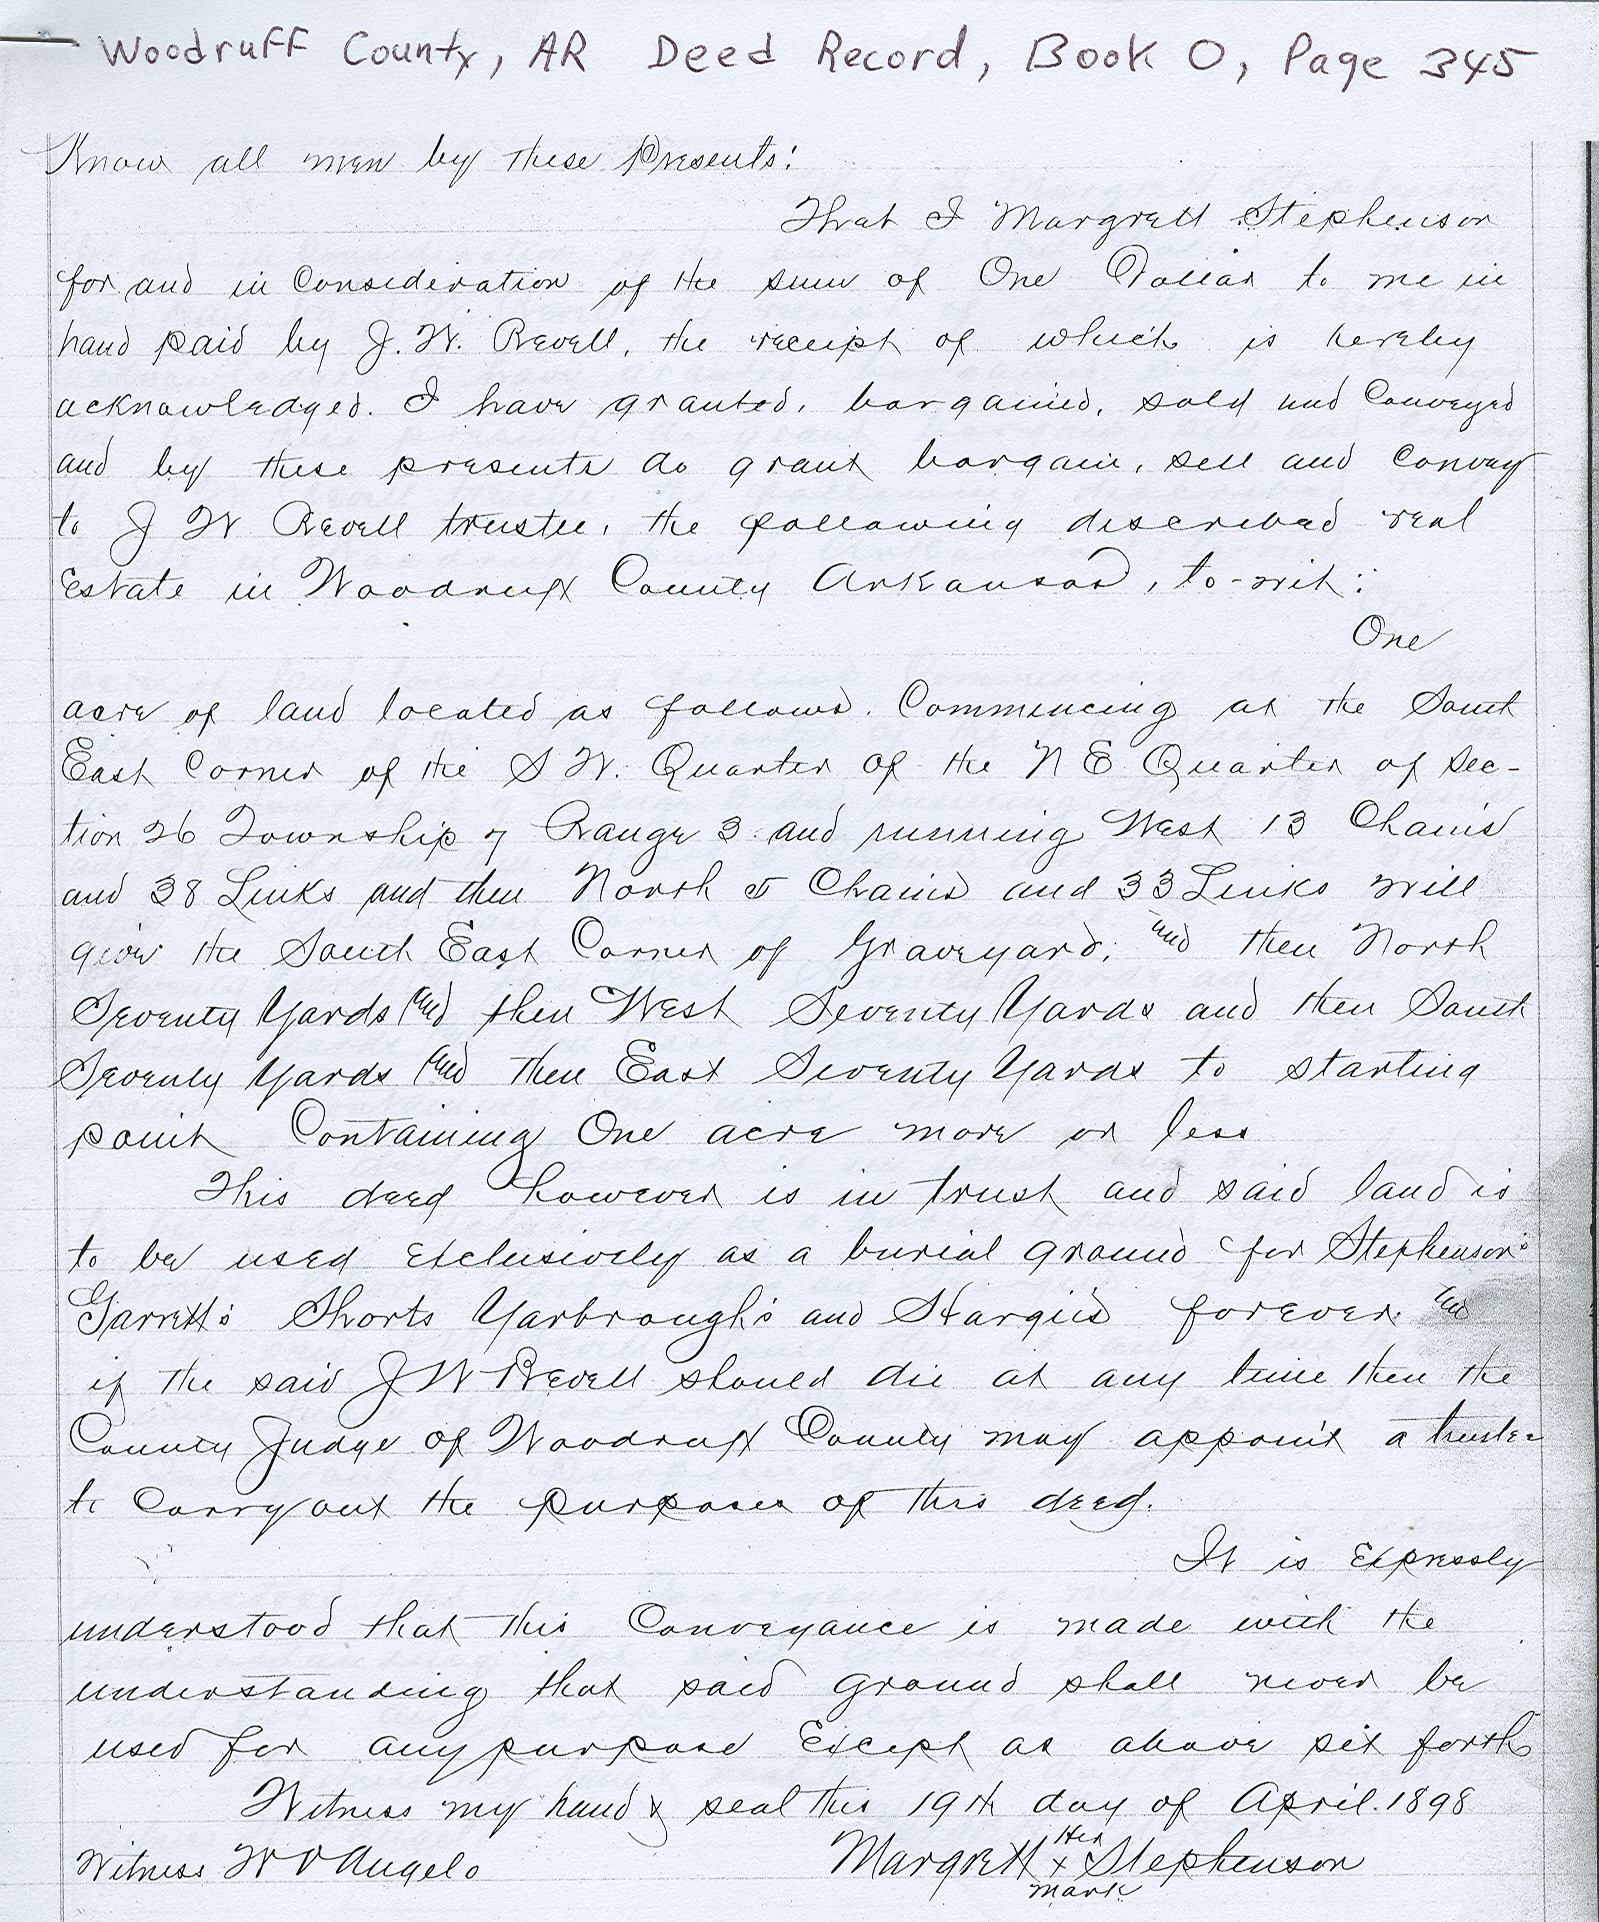 Woodruff County, AR Deed Record, Book O, Page 345
Know all men by these Presents:
That I Margrett Stephenson
for and in Consideration of the sum of One Dollar to me in
hand paid by J. W. Revell, the receipt of which is hereby
acknowledged. I have granted, bargained, sold and Conveyed
and by these presents do grant bargain, sell and Convey
to J W Revell trustee, the following described real
Estate in Woodruff County Arkansas, to-wit:
One
acre of land located as follows. Commencing at the South
East Corner of the S W. Quarter of the N E Quarter of Sec-
tion 26 Township 7 Range 3 and running West 13 Chains
and 38 Links and then North 5 Chains and 33 Links will
give the South East Corner of Graveyard, and then North
Seventy Yards and then West Seventy Yards and then South
Seventy Yards and then East Seventy Yards to starting
point Containing One acre more or less
This deed however is in trust and said land is
to be used Exclusively as a burial ground for Stephenson's
Garrett's Shorts Yarbrough's and forever. and
if the said J W Revell should die at any time then the
County Judge of Woodruff County may appoint a trustee
to Carry out the purposes of this deed.
It is Expressly
understood that this Conveyance is made with the
understanding that said ground shall never be
used for any purpose Except as above set forth
Witness my hand & seal this 19th day of April. 1898
Witness W V Angelo
Margrett Her x mark Stephenson